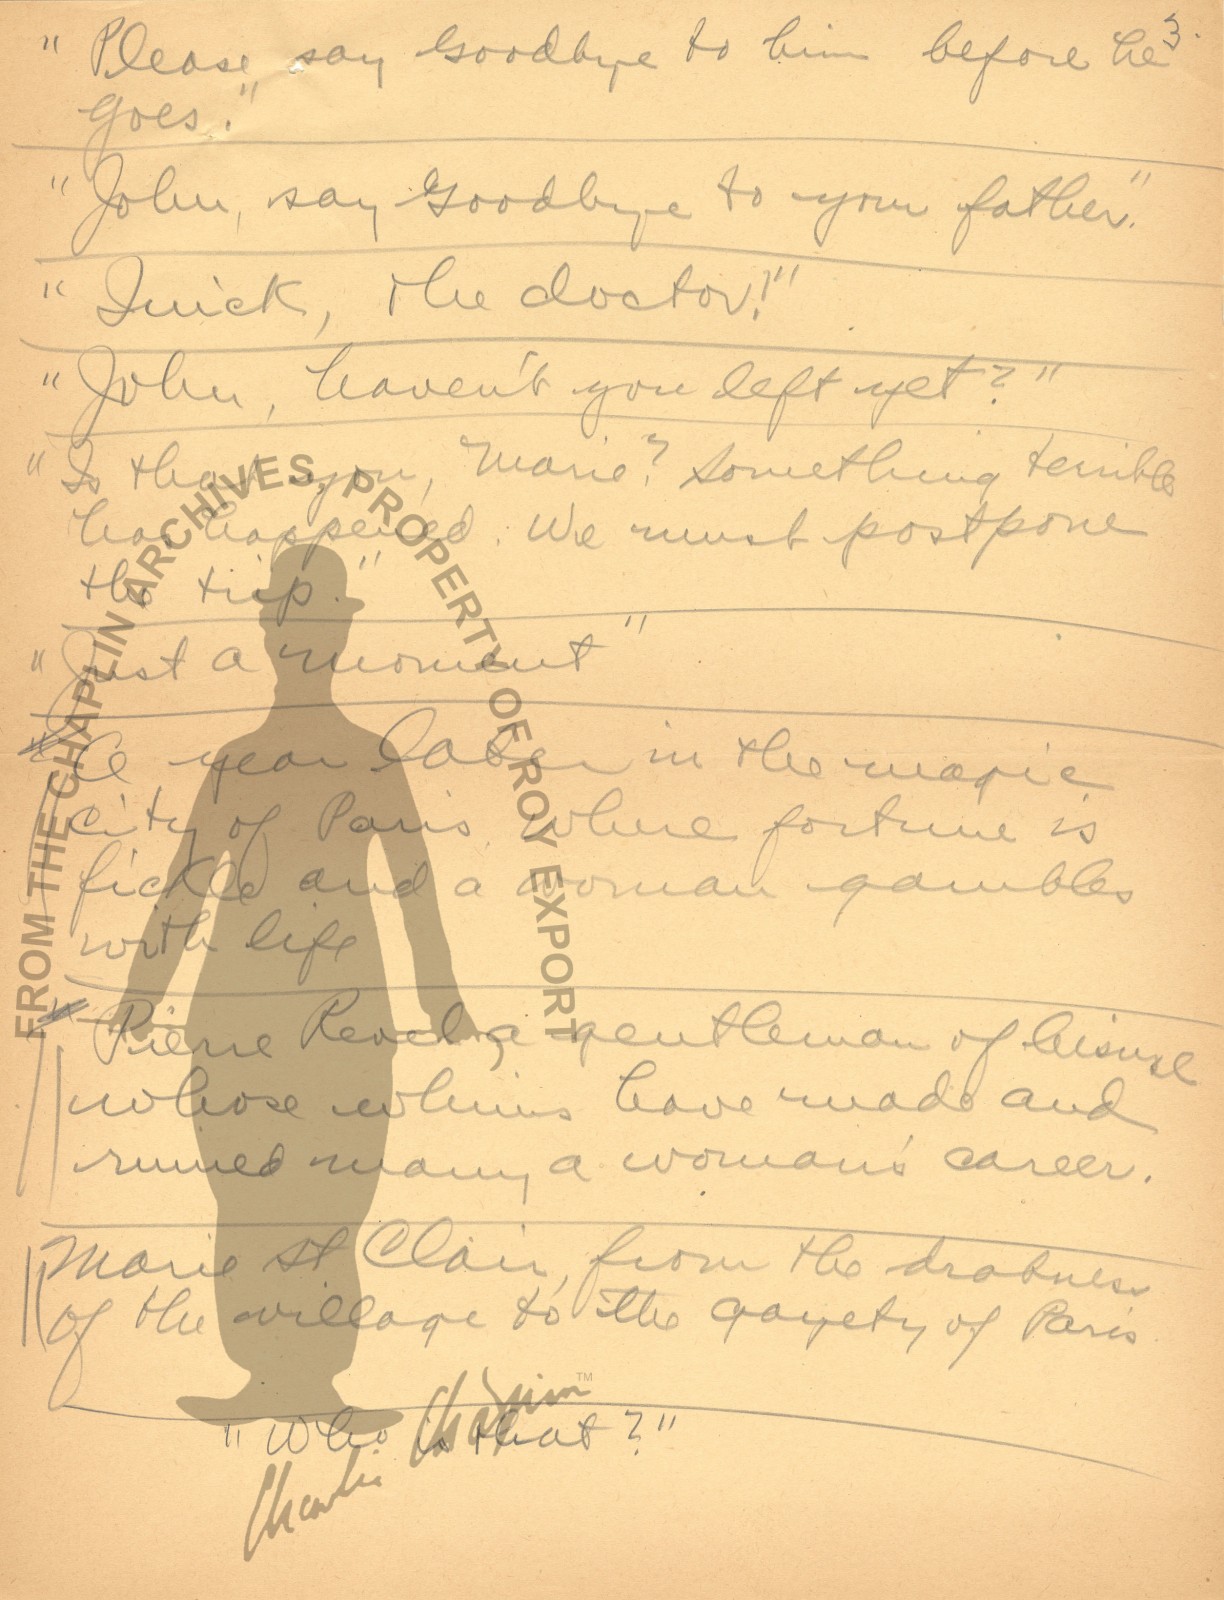 3.
" Please say Goodbye to him before he
goes."
" John, say Goodbye to your father."
" Quick, the doctor!"
" John, haven't you left yet?"
" Is that you, Marie? Something terrible
has happened. We must postpone
the trip."
" Just a moment "
A year later in the magic
city of Paris, where fortune is
fickle and a woman gambles
with life
Pierre Revel, a gentleman of leisure
whose whims have made and
ruined many a woman's career.
Marie St Clair, from the drabness
of the village to the gayety of Paris
" Who is that? "
FROM THE CHAPLIN ARCHIVES, PROPERTY OF ROY EXPORT
Charlie Chaplin™